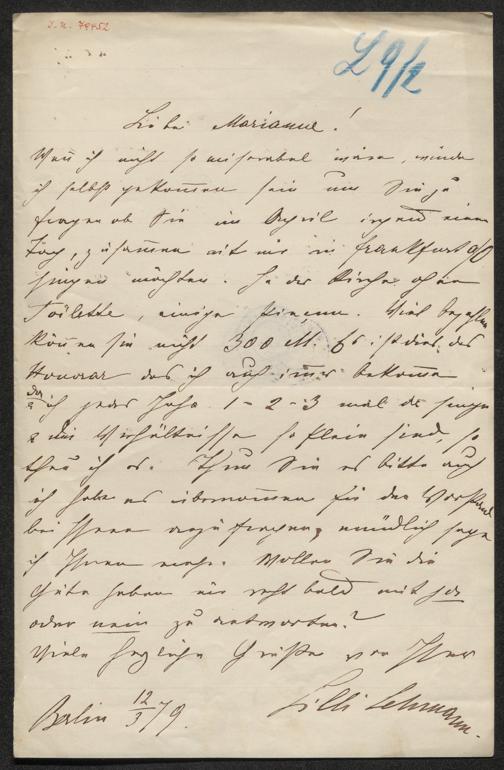 I. N. 79852
L 9/2
Liebe Marianne!
Wenn ich nicht so miserabel wäre, würde
ich selbst gekommen sein um Sie zu
fragen ob Sie im April irgend einen
Tag, zusammen mit mir in Frankfurt a/O
singen möchten. In der Kirche ohne
Toilette, einige Viel bezahlen
können sie nicht 300 M. Es ist dies das
Honorar das ich auch immer bekomme
da
ich jedes Jahr 1-2-3 mal da singe
u die Verhältnisse so klein sind, so
thue ich es. Thun Sie es bitte auch
ich habe es übernommen für den Vorstand
bei Ihnen anzufragen, mündlich sage
ich Ihnen mehr. Wollen Sie die
Güte haben mir recht bald mit ja
oder nein zu antworten?
Viele herzliche Grüße von Ihrer
Lilli Lehmann.
Berlin 12/3 79.